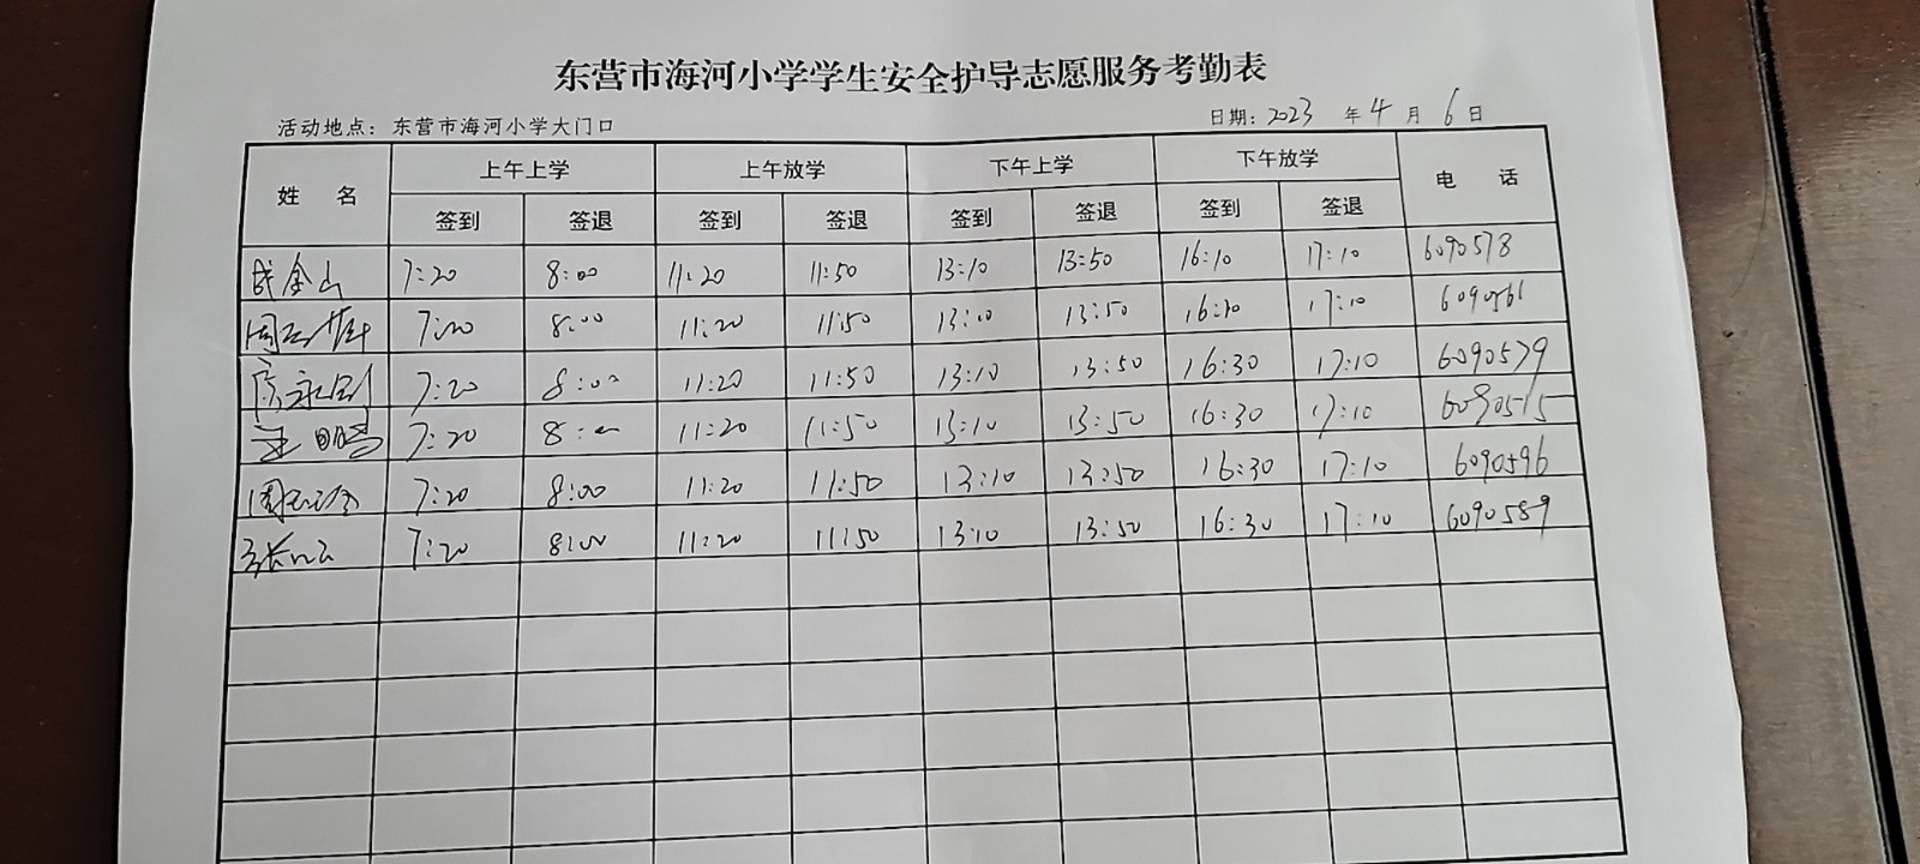 东营市海河小学学生安全护导志愿服务考勤表
活动地点：东营市海河小学大门口 日期：2023 年 4 月 6 日
姓 名 上午上学 上午放学 下午上学 下午放学 电 话
签到 签退 签到 签退 签到 签退 签到 签退
成金山 7:20 8:00 11:20 11:50 13:10 13:50 16:10 17:10 6090578
7:20 8:00 11:20 11:50 13:10 13:50 17:10 6090561
7:20 8:00 11:20 11:50 13:10 13:50 16:30 17:10 6090579
7:20 8:00 11:20 11:50 13:10 13:50 16:30 17:10 6090515
7:20 8:00 11:20 11:50 13:10 13:50 16:30 17:10 6090596
7:20 8:00 11:20 11:50 13:10 13:50 16:30 17:10 6090589